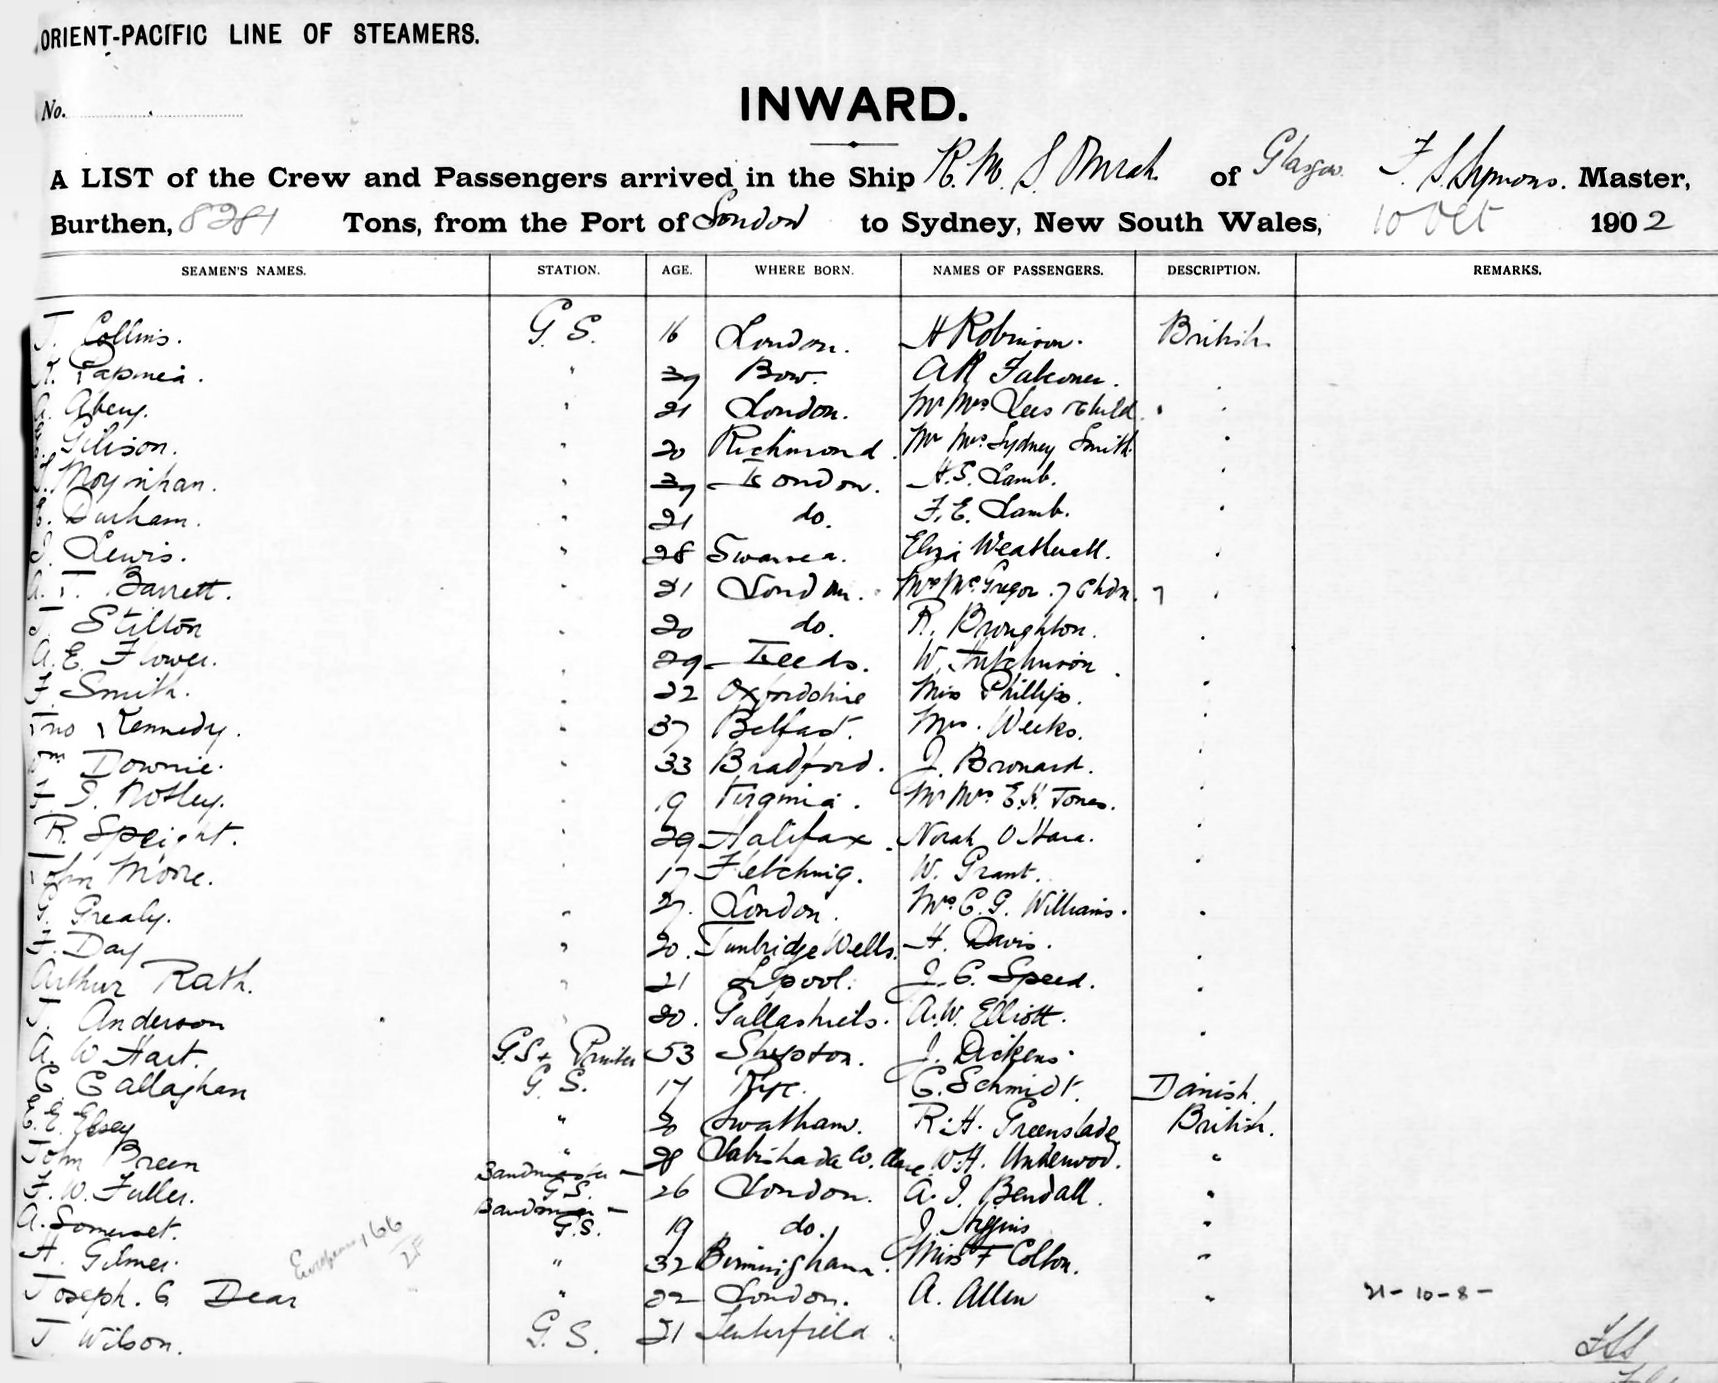 ORIENT-PACIFIC LINE OF STEAMERS.
No.
INWARD.
A LIST of the Crew and Passengers arrived in the Ship R.M.S. Omrah of Glasgow F. S. Symons. Master,
Burthen, 8281 Tons, from the Port of London to Sydney, New South Wales, 10 Oct 1902
SEAMEN'S NAMES. STATION. AGE. WHERE BORN. NAMES OF PASSENGERS. DESCRIPTION. REMARKS.
T. Collins. G. S. 16 London. H Robinson. British.
39 Bow. A R Falconer.
A. 21 London. Mr Mrs Lees & Child
Gilison. 20 Richmond. Mr Mrs Sydney Smith.
Moynihan. 39 London. H. S. Lamb.
Durham. 21 do. F. E. Lamb.
Lewis. 28 Swansea. Eliza
A. T. Barrett. 21 London. Mrs McGregor. 7 Chdn. 7
Stilton 20 do. R. Broughton.
A. E. Flower. 29 Leeds. W.
F. Smith. 22 Oxfordshire Miss Phillips.
Kennedy. 37 Belfast. Mrs. Weeks.
Wm Downie. 33 Bradford. J.
S. Notley. 19 Virginia. Mr Mrs E. H. Jones.
R. Speight. 29 Halifax. Norah O Hara.
John Moore. 17 Fletching. W. Grant.
G. Grealy. 27. London. Mrs C. G. Williams.
Day " 20. Tunbridge Wells. H. Davis.
Arthur Rath. 21 L'pool. J. C. Speed.
Anderson 20. Gallashiels. A. W. Elliott.
A. W. Hart. G.S. & Printer 53 Shepton. J. Dickens.
C Callaghan G. S. 17 Rye. C. Schmidt. Danish.
E. E. " 20 Swatham. R. H. Greenslade British.
John Breen " 28 Co. Clare. W. H. Underwood. "
F. W. Fuller. Bandmaster - G.S. 26 London. A. J. Bendall. "
A. Somerset. Bandsman - G.S. 19 do. J. "
H. Gilmer. " 32 Birmingham. Miss F Colton. "
Europeans 166
Joseph. C Dear " 22 London. A. Allen " 21-10-8-
J Wilson. G. S. 21 Tenterfield.
FSS